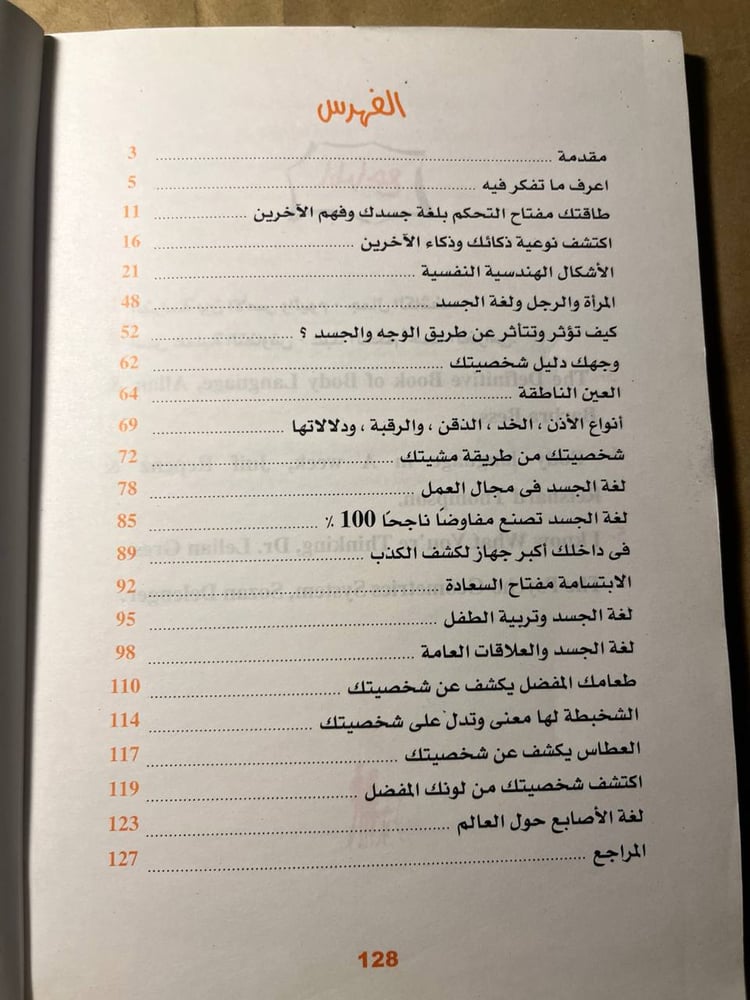 الفهرس
مقدمة ........ 3
اعرف ما تفكر فيه ........ 5
طاقتك مفتاح التحكم بلغة جسدك وفهم الآخرين ........ 11
اكتشف نوعية ذكائك وذكاء الآخرين ........ 16
الأشكال الهندسية النفسية ........ 21
المرأة والرجل ولغة الجسد ........ 48
كيف تؤثر وتتأثر عن طريق الوجه والجسد ؟ ........ 52
وجهك دليل شخصيتك ........ 62
العين الناطقة ........ 64
أنواع الأذن ، الخد ، الذقن ، والرقبة ، ودلالاتها ........ 69
شخصيتك من طريقة مشيتك ........ 72
لغة الجسد فى مجال العمل ........ 78
لغة الجسد تصنع مفاوضًا ناجحًا 100 ٪ ........ 85
فى داخلك أكبر جهاز لكشف الكذب ........ 89
الابتسامة مفتاح السعادة ........ 92
لغة الجسد وتربية الطفل ........ 95
لغة الجسد والعلاقات العامة ........ 98
طعامك المفضل يكشف عن شخصيتك ........ 110
الشخبطة لها معنى وتدل على شخصيتك ........ 114
العطاس يكشف عن شخصيتك ........ 117
اكتشف شخصيتك من لونك المفضل ........ 119
لغة الأصابع حول العالم ........ 123
المراجع ........ 127
128